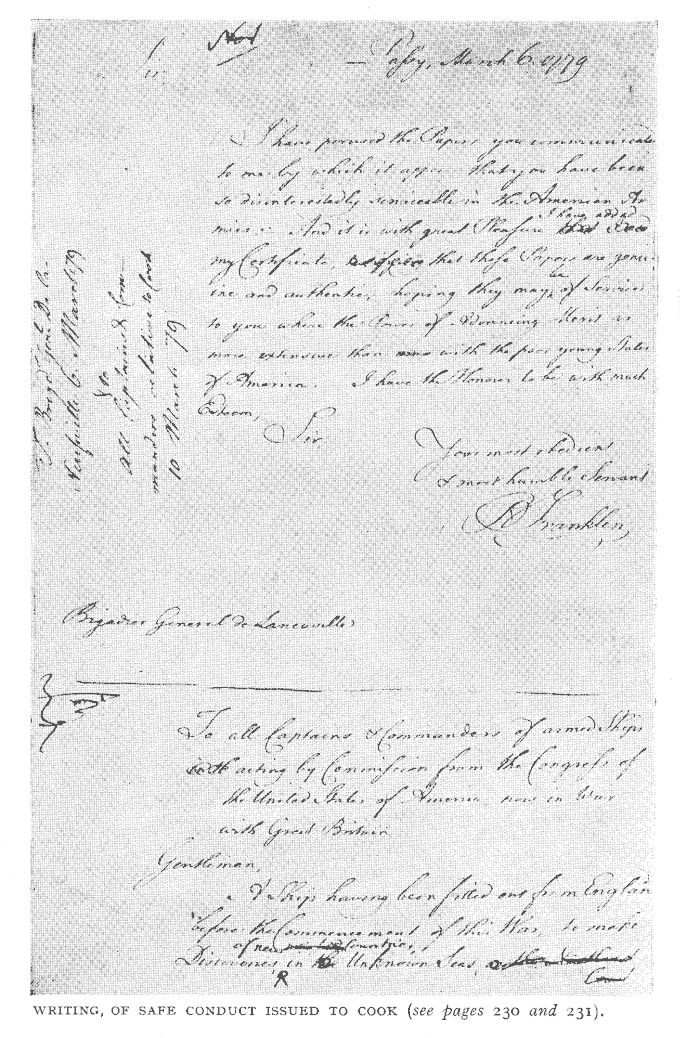 Sir
Passy, March 6. 1779
I have perused the Papers you communicated
to me, by which it appears that you have been
so disinterestedly serviceable in the American Ar
mies: And it is with great Pleasure that I
I have added
my Certificate, that those Papers are genu-
ine and authentic, hoping they may be of Service
to you where the Power of Advancing Merit is
more extensive than with the poor young States
of America. I have the Honour to be with much
Esteem,
Sir
Your most obedient
& most humble Servant
B Franklin
To Brigd. Genl. De la
Neufville 6. March 79
& to
all Captains & Com-
manders relative to Cook
10 March 79
Brigadier General de Laneuville
To all Captains & Commanders of armed Ships
acting by Commission from the Congress of
the United States of America, now in War
with Great Britain
Gentlemen,
A Ship having been fitted out from England
before the Commencement of this War, to make
of new Countries,
Discoveries in Unknown Seas,
WRITING, OF SAFE CONDUCT ISSUED TO COOK (see pages 230 and 231).